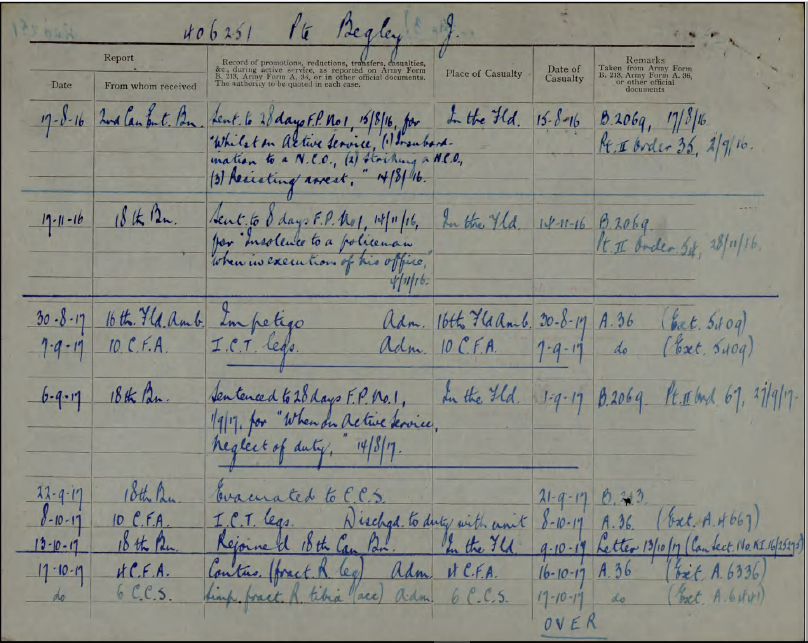 406251 Pte Begley J.
Report
Record of promotions, reductions, transfers, casualties,
&c., during active service, as reported on Army Form
B. 213, Army Form A. 36, or in other official documents.
The authority to be quoted in each case.
Place of Casualty
Date of
Casualty
Remarks
Taken from Army Form
B. 213, Army Form A. 36,
or other official
documents
Date From whom received
17-8-16 2nd Can Ent. Bn. Sent. to 28 days F.P. No 1, 15/8/16, for In the Fld. 15-8-16 B.2069, 17/8/16.
"Whilst on Active Service, (1) Insubord- Pt. II Order 35, 2/9/16.
ination to a N.C.O., (2) Striking a N.C.O,
(3) Resisting arrest," 14/8/16.
17-11-16 18th Bn. Sent. to 8 days F.P. No 1, 14/11/16, In the Fld. 14-11-16 B.2069.
for "Insolence to a policeman Pt. II Order 58, 28/11/16.
when in execution of his office,"
4/11/16.
30-8-17 16th. Fld. Amb. Impetigo Adm. 16th Fld Amb. 30-8-17 A.36 (Ext. 5409)
7-9-17 10 C.F.A. I.C.T. legs. Adm. 10 C.F.A. 7-9-17 do (Ext. 5409)
6-9-17 18th Bn. Sentenced to 28 days F.P. No.1, In the Fld. 1-9-17 B.2069. Pt. II Ord. 67, 27/9/17.
1/9/17, for "When on Active Service,
Neglect of duty," 14/8/17.
22-9-17 18th Bn. Evacuated to C.C.S. 21-9-17 B.213.
8-10-17 10 C.F.A. I.C.T. legs. Dischgd. to duty with unit 8-10-17 A.36. (Ext. A.4667)
13-10-17 18th Bn. Rejoined 18th Can Bn. In the Fld 9-10-17 Letter 13/10/17 (Can Sect. No.
17-10-17 4 C.F.A. Contus. (fract. R leg) Adm. 4 C.F.A. 16-10-17 A.36 (Ext A.6336)
do 6 C.C.S. Simp. fract. R. tibia (acc) Adm. 6 C.C.S. 17-10-17 do (Ext. A.6441)
OVER